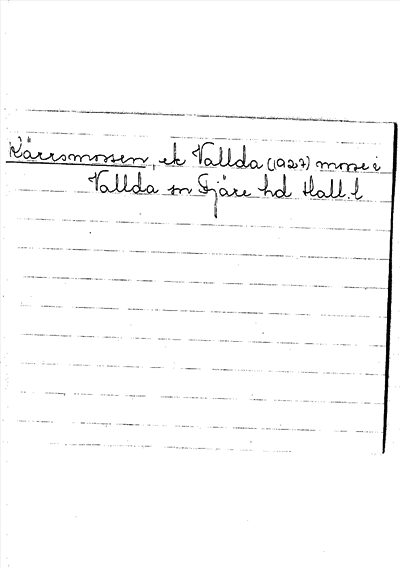 Kärrsmossen, ek Vallda (1927) mosse i
Vallda sn Fjäre hd Hall. l